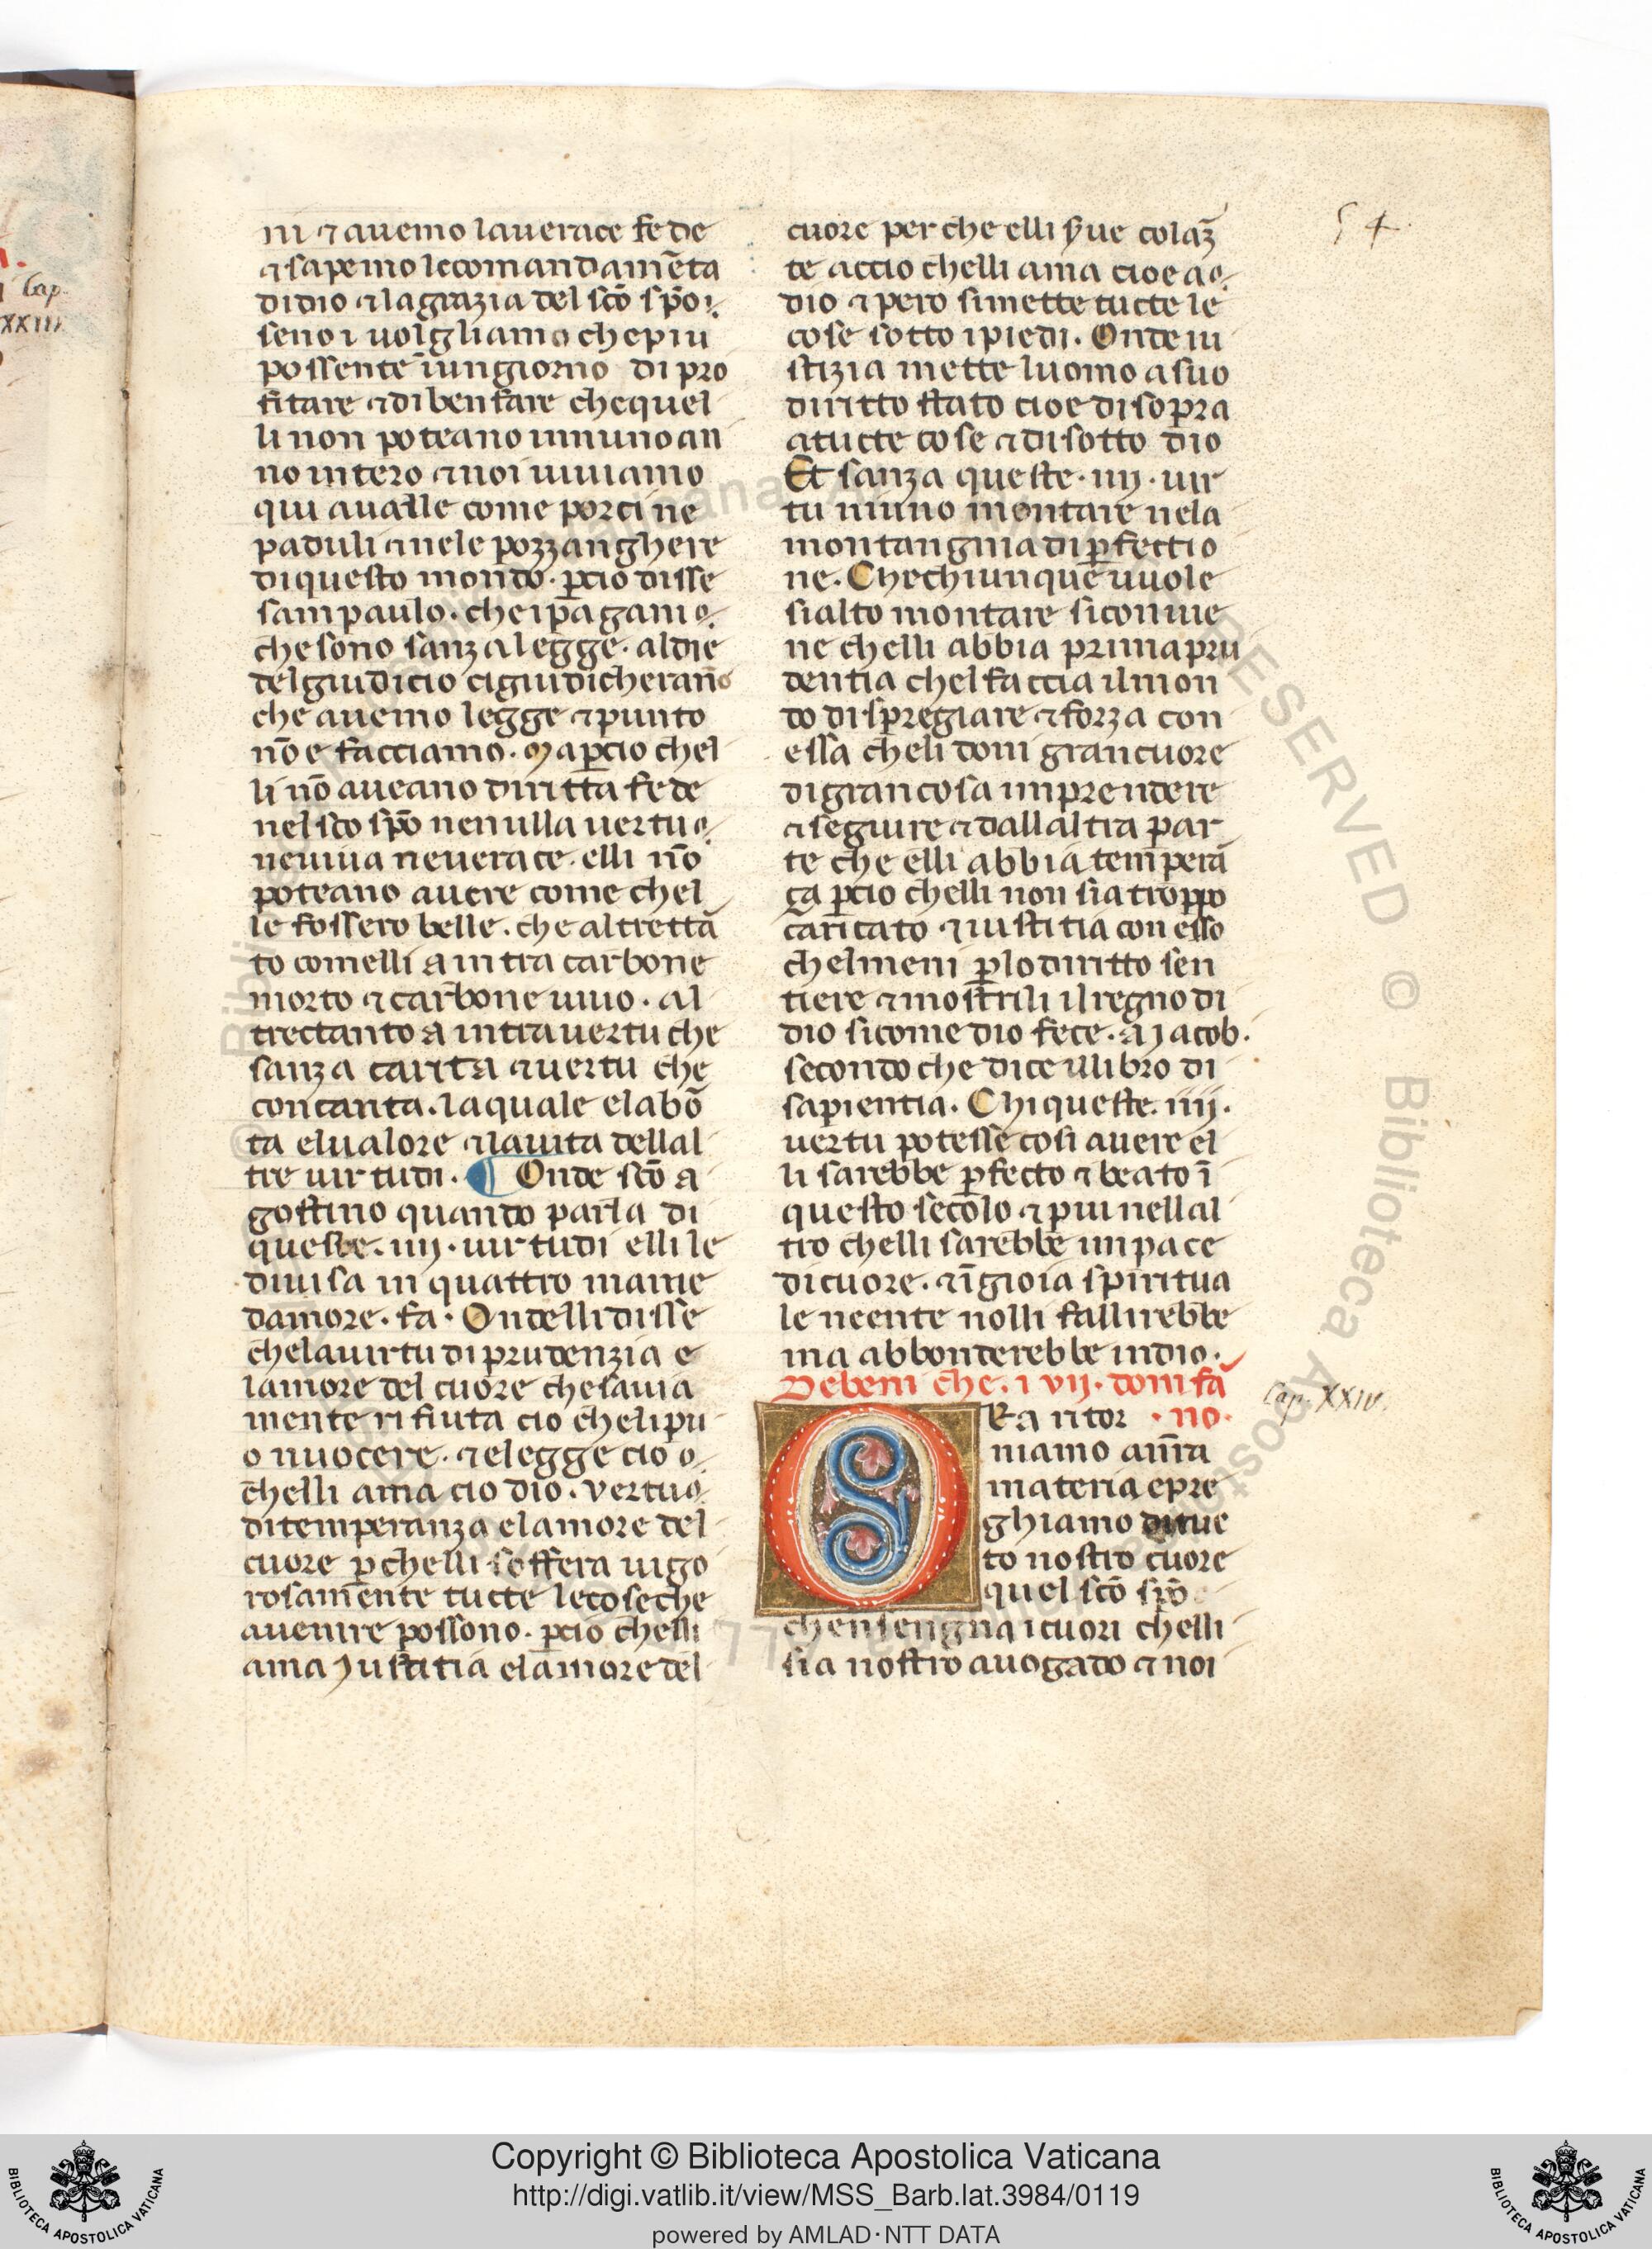 54.
ni ⁊ auemo lauerace fede
⁊ sapemo lecomandamēta
didio ⁊ lagrazia del sc̄o sp̄o ..
seno i uolgliamo chepiu
possente īungiorno di pro
fitare ⁊ dibenfare chequel
li non poteano innuno an
no intero ⁊ noi uiuiamo
qui aualle come porci ne
paduli ⁊ nele pozzanghere
diquesto mondo. ꝑcio disse
sampaulo. che ipagani
che sono sanza legge. aldie
delgiudicio cigiudicherano
che auemo legge ⁊ punto
nō e facciamo. Ma ꝑcio chel
li nō aueano diritta fede
nel sc̄o sp̄o nenulla uertu
neuiua neuerace. elli nō
poteano auere come chel
le fossero belle. che altrettā
to comelli a intra carbone
morto ⁊ carbone uiuo. al
trectanto a intra uertu che
sanza carita ⁊ uertu che
concarita. laquale elabō
ta eluualore ⁊ lauita dellal
tre uirtudi. ¶ Onde sc̄o a
gostino quando parla di
queste. iiij. uirtudi elli le
diuisa in quattro manie
damore. fa. Ondelli disse
chelauirtu di prudenzia e
lamore del cuore chesauia
mente rifiuta cio chelipu
o nuocere. ⁊ elegge cio
chelli ama cio dio. vertu
ditemperanza elamore del
cuore ꝑ chelli soffera uigo
rosamente tucte lecoseche
auenire possono. ꝑcio chelli
ama Justitia elamore del
cuore per che elli ue colaz̄
te accio chelli ama cioe a
dio ⁊ pero simette tucte le
cose sotto ipiedi. Onde iu
stizia mette luomo asuo
diritto stato cioe disopra
atucte cose ⁊ disotto dio
Et sanza queste. iiij. uir
tu niuno montare nela
montangnia di ꝑfectio
ne. Chechiunque uuole
sialto montare siconuie
ne chelli abbia prima pru
dentia chelfaccia ilmon
do dispregiare ⁊ forza con
essa cheli doni grancuore
digrancosa imprendere
⁊ seguire ⁊ dallaltra par
te che elli abbia temperā
ça ꝑcio chelli non sia troppo
caricato ⁊ iustitia con esso
chelmeni ꝑlodiritto sen
tiere ⁊ mostrili ilregno di
dio sicome dio fece. a Jacob.
secondo che dice illibro di
sapientia. Chi queste. iiij.
uertu potesse cosi auere el
li sarebbe ꝑfecto ⁊ beato ī
questo secolo ⁊ piu nellal
tro chelli sarebbe inpace
dicuore. ⁊ īgioia spiritua
le neente nolli fallirebbe
ma abbonderebbe indio.
Debeni che. i vij. doni fā
Ra ritor no.
niamo anr̄a
materia epre
ghiamo ditue
to nostro cuore
quel sc̄o sp̄o
chensengna i cuori chelli
sia nostro auogado ⁊ noi
Cap. XXIV.
Cap.
XXIII.
Copyright © Biblioteca Apostolica Vaticana
http://digi.vatlib.it/view/MSS_Barb.lat.3984/0119
powered by AMLAD·NTT DATA
BIBLIOTECA APOSTOLICA VATICANA
BIBLIOTECA APOSTOLICA VATICANA